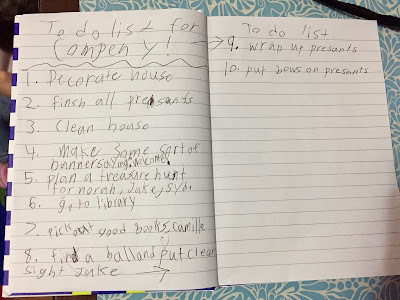 To do list for
Compen y!
1. Decorate house
2. finsh all presants
3. clean house
4. make some sort of
banner saying welcome.
5. plan a treasure hunt
for norah, Jake, syd.
6. go to library
7. pick out good books, camille
8. find a ball and put clear
sight Jake →
To do list
→ 9. wrap up presants
10. put bows on presants